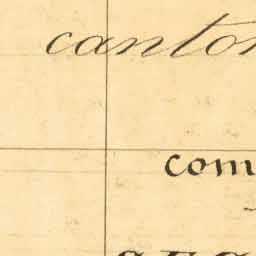 canton
com